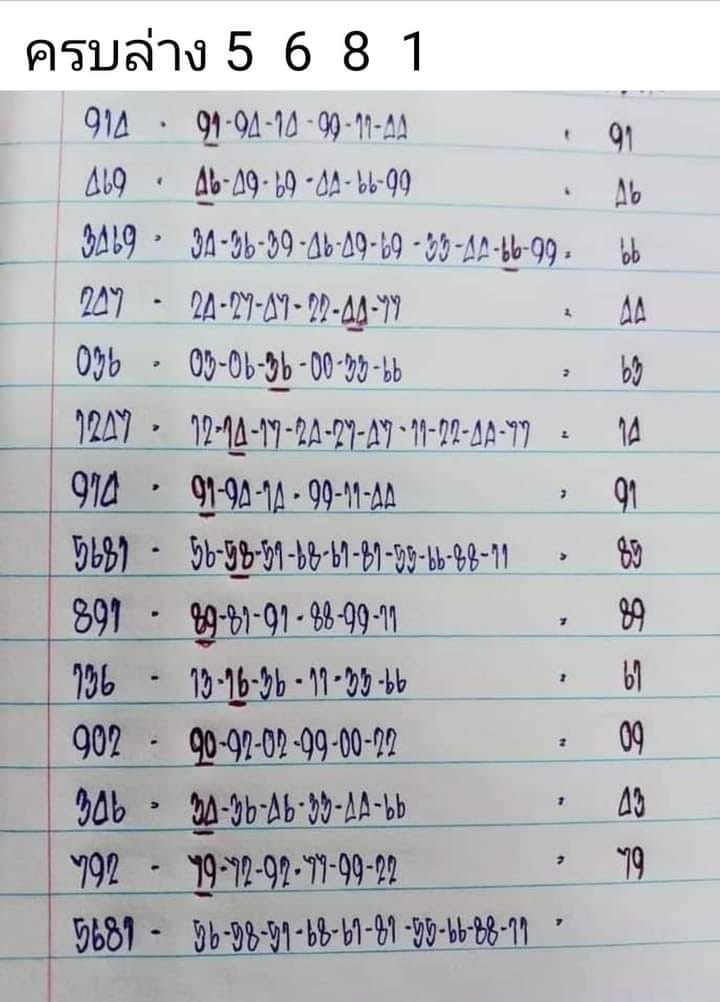 ครบล่าง 5 6 8 1
914 - 91-94-14-99-11-44 = 91
469 - 46-49-69-44-66-99 = 46
3469 - 34-36-39-46-49-69-33-44-66-99 = 66
247 - 24-27-47-22-44-77 = 44
036 - 03-06-36-00-33-66 = 63
1247 - 12-14-17-24-27-47-11-22-44-77 = 14
914 - 91-94-14-99-11-44 = 91
5681 - 56-58-51-68-61-81-55-66-88-11 = 85
891 - 89-81-91-88-99-11 = 89
136 - 13-16-36-11-33-66 = 61
902 - 90-92-02-99-00-22 = 09
346 - 34-36-46-33-44-66 = 43
792 - 79-72-92-77-99-22 = 79
5681 - 56-58-51-68-61-81-55-66-88-11 =